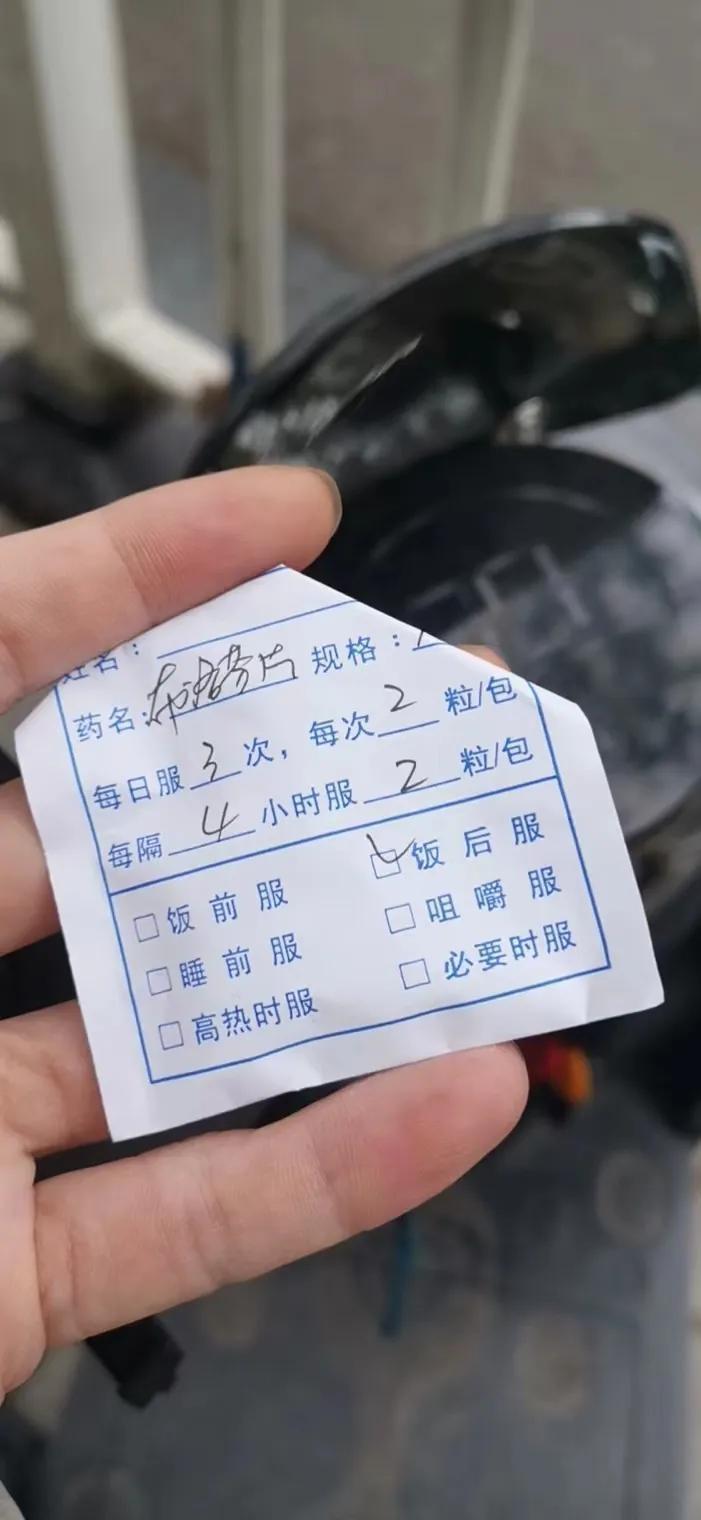 姓名：
药名：布洛芬片 规格：
每日服 3 次，每次 2 粒/包
每隔 4 小时服 2 粒/包
☑饭后服
□饭前服
□咀嚼服
□睡前服
□必要时服
□高热时服